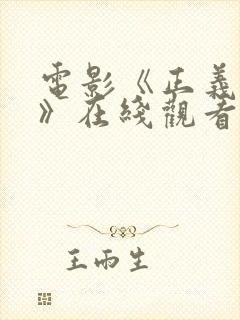 電影《正義
》在綫觀看
王雨生